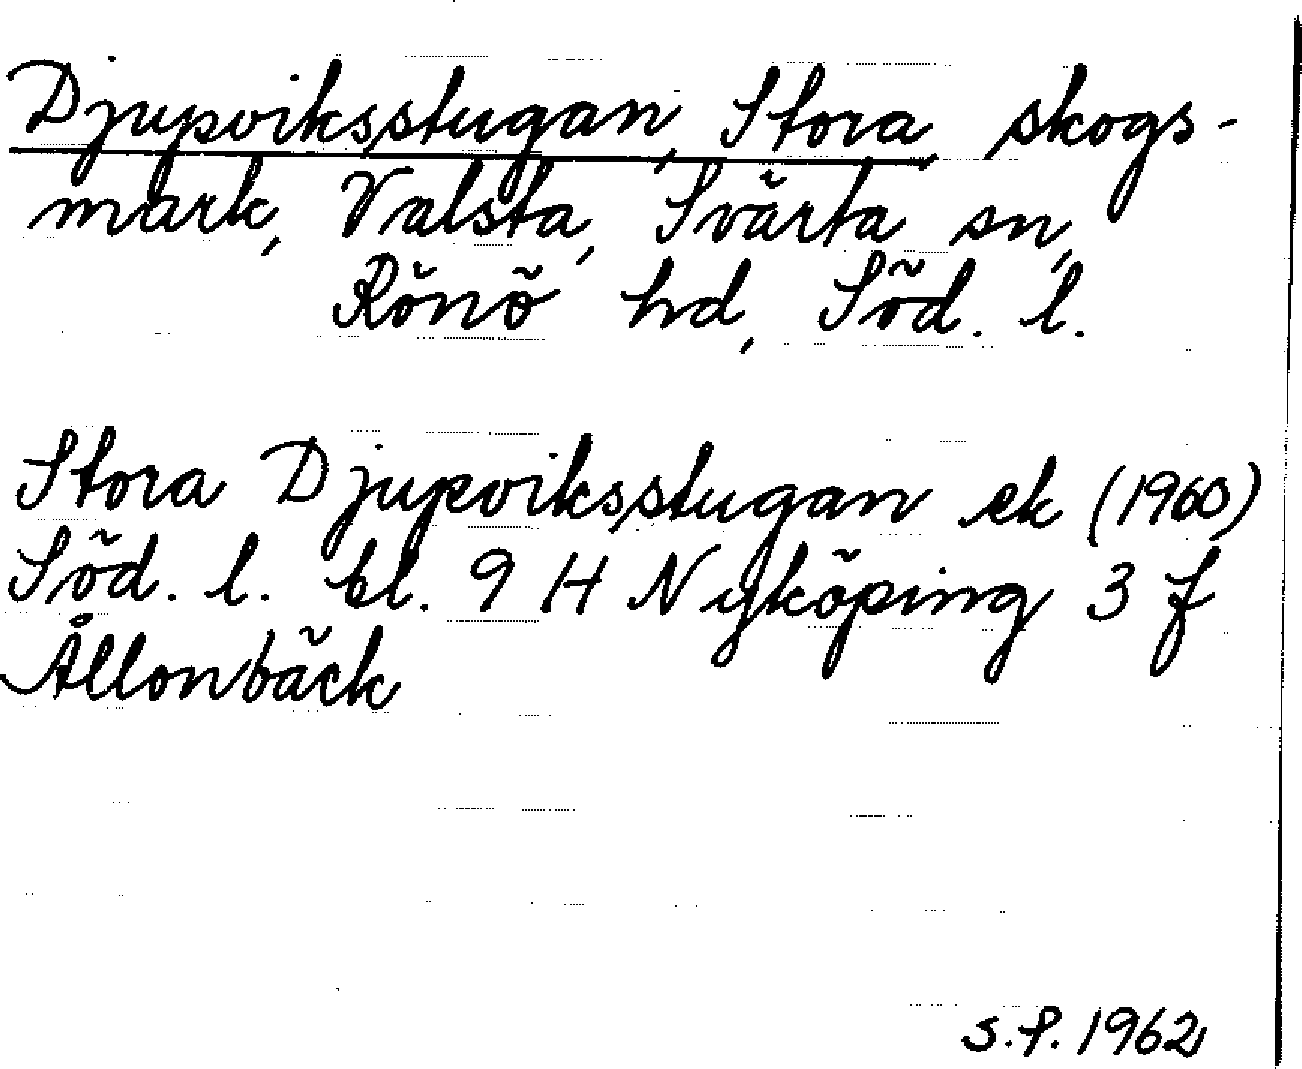 Djupviksstugan, Stora, skogs-
mark, Valsta, Svärta sn,
Rönö hd, Söd. l.
Stora Djupviksstugan ek (1960)
Söd. l. bl. 9 H Nyköping 3 f
Ållonbäck
S.P. 1962